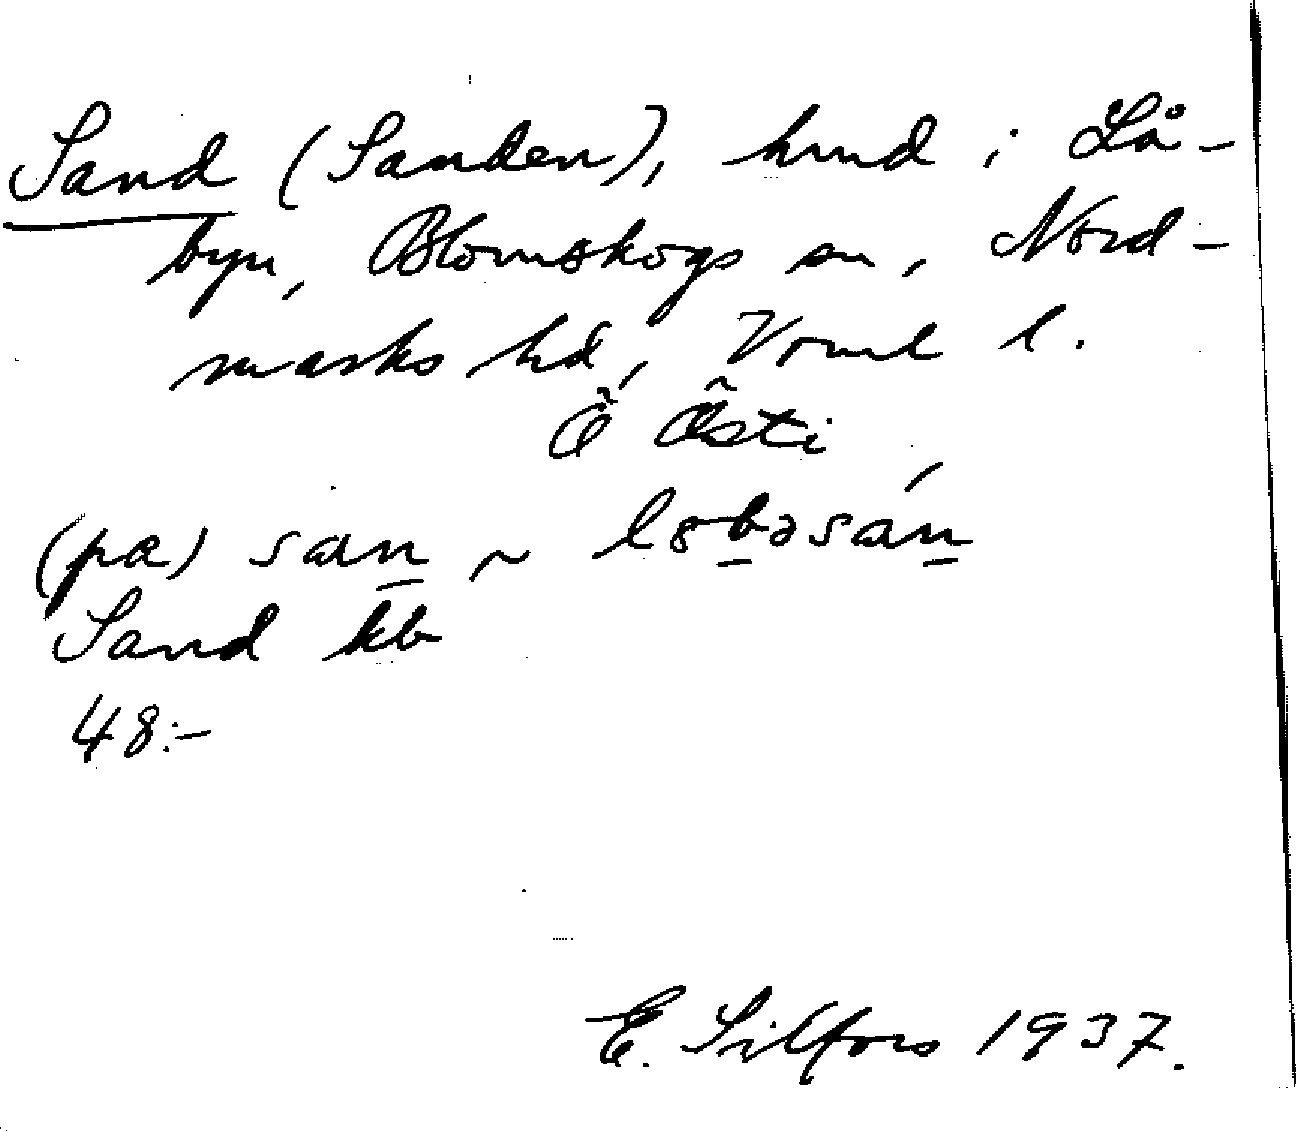 Sand (Sanden), hmd i Lå-
byn, Blomskogs sn, Nord-
marks hd, Vrml l.
Östi
(pa) san ~ l8bəsán
Sand kb
48:-
E. Silfors 1937.